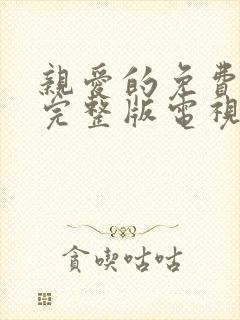 親愛的免費
完整版電視
貪喫咕咕